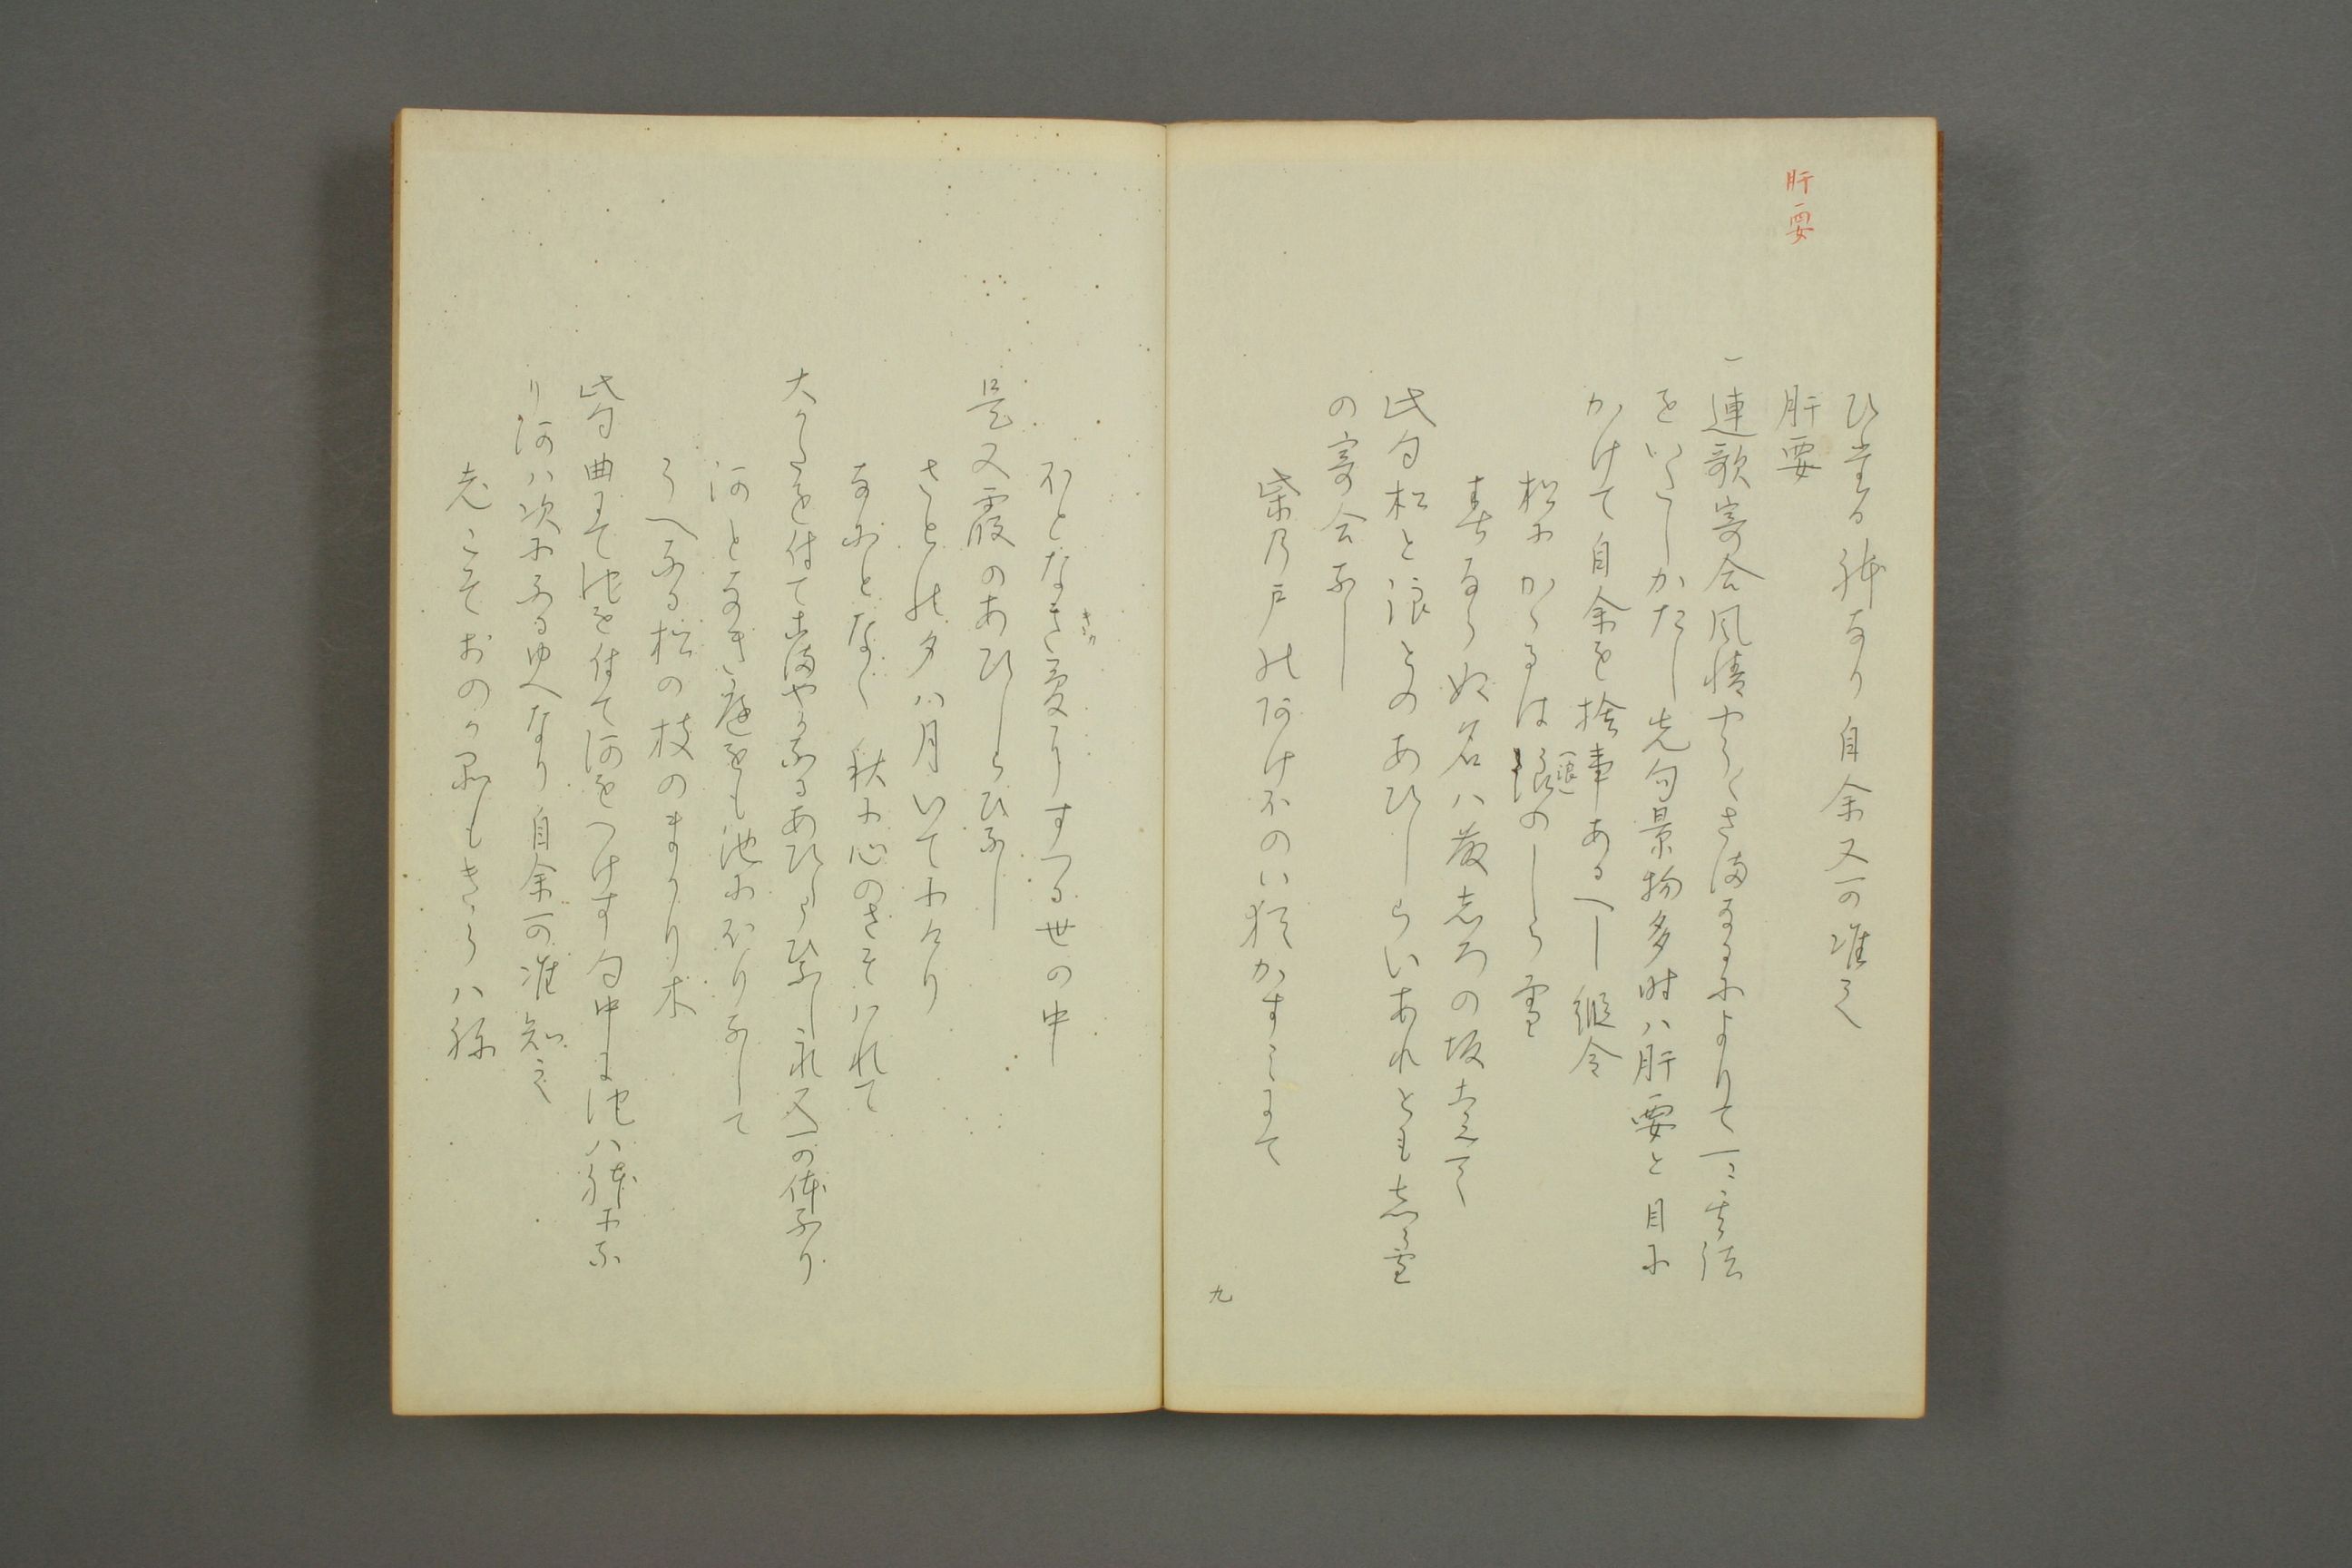 肝要
ひ当る躰なり自余又可准之
肝要
一連歌寄合風情やうくさ満なるによりて一二其法
をいたしかたし先句景物多時ハ肝要と目に
かけて自余を捨事あるへし縦令
松にかゝるは浪のしら雪
浪
春ならぬ名ハ
此句松と浪とのあひしらいあれとも志ら雪
の寄合なし
柴乃戸のあけほのハ猶かすミにて
九
ほとなき変りすつる世の中
是又霞のあひしらひなし
さとの夕ハ月いてにけり
なにとなく秋に心のさそはれて
大かたを付てこまやかなるあひしらひなし又一の体なり
河となき庭をも池にほりなして
うへなる松の枝のまかり木
此句曲にて池を付て河をつけす句中に池ハ躰にな
り河ハ次になるゆへなり自余可准知之
老こそおのか